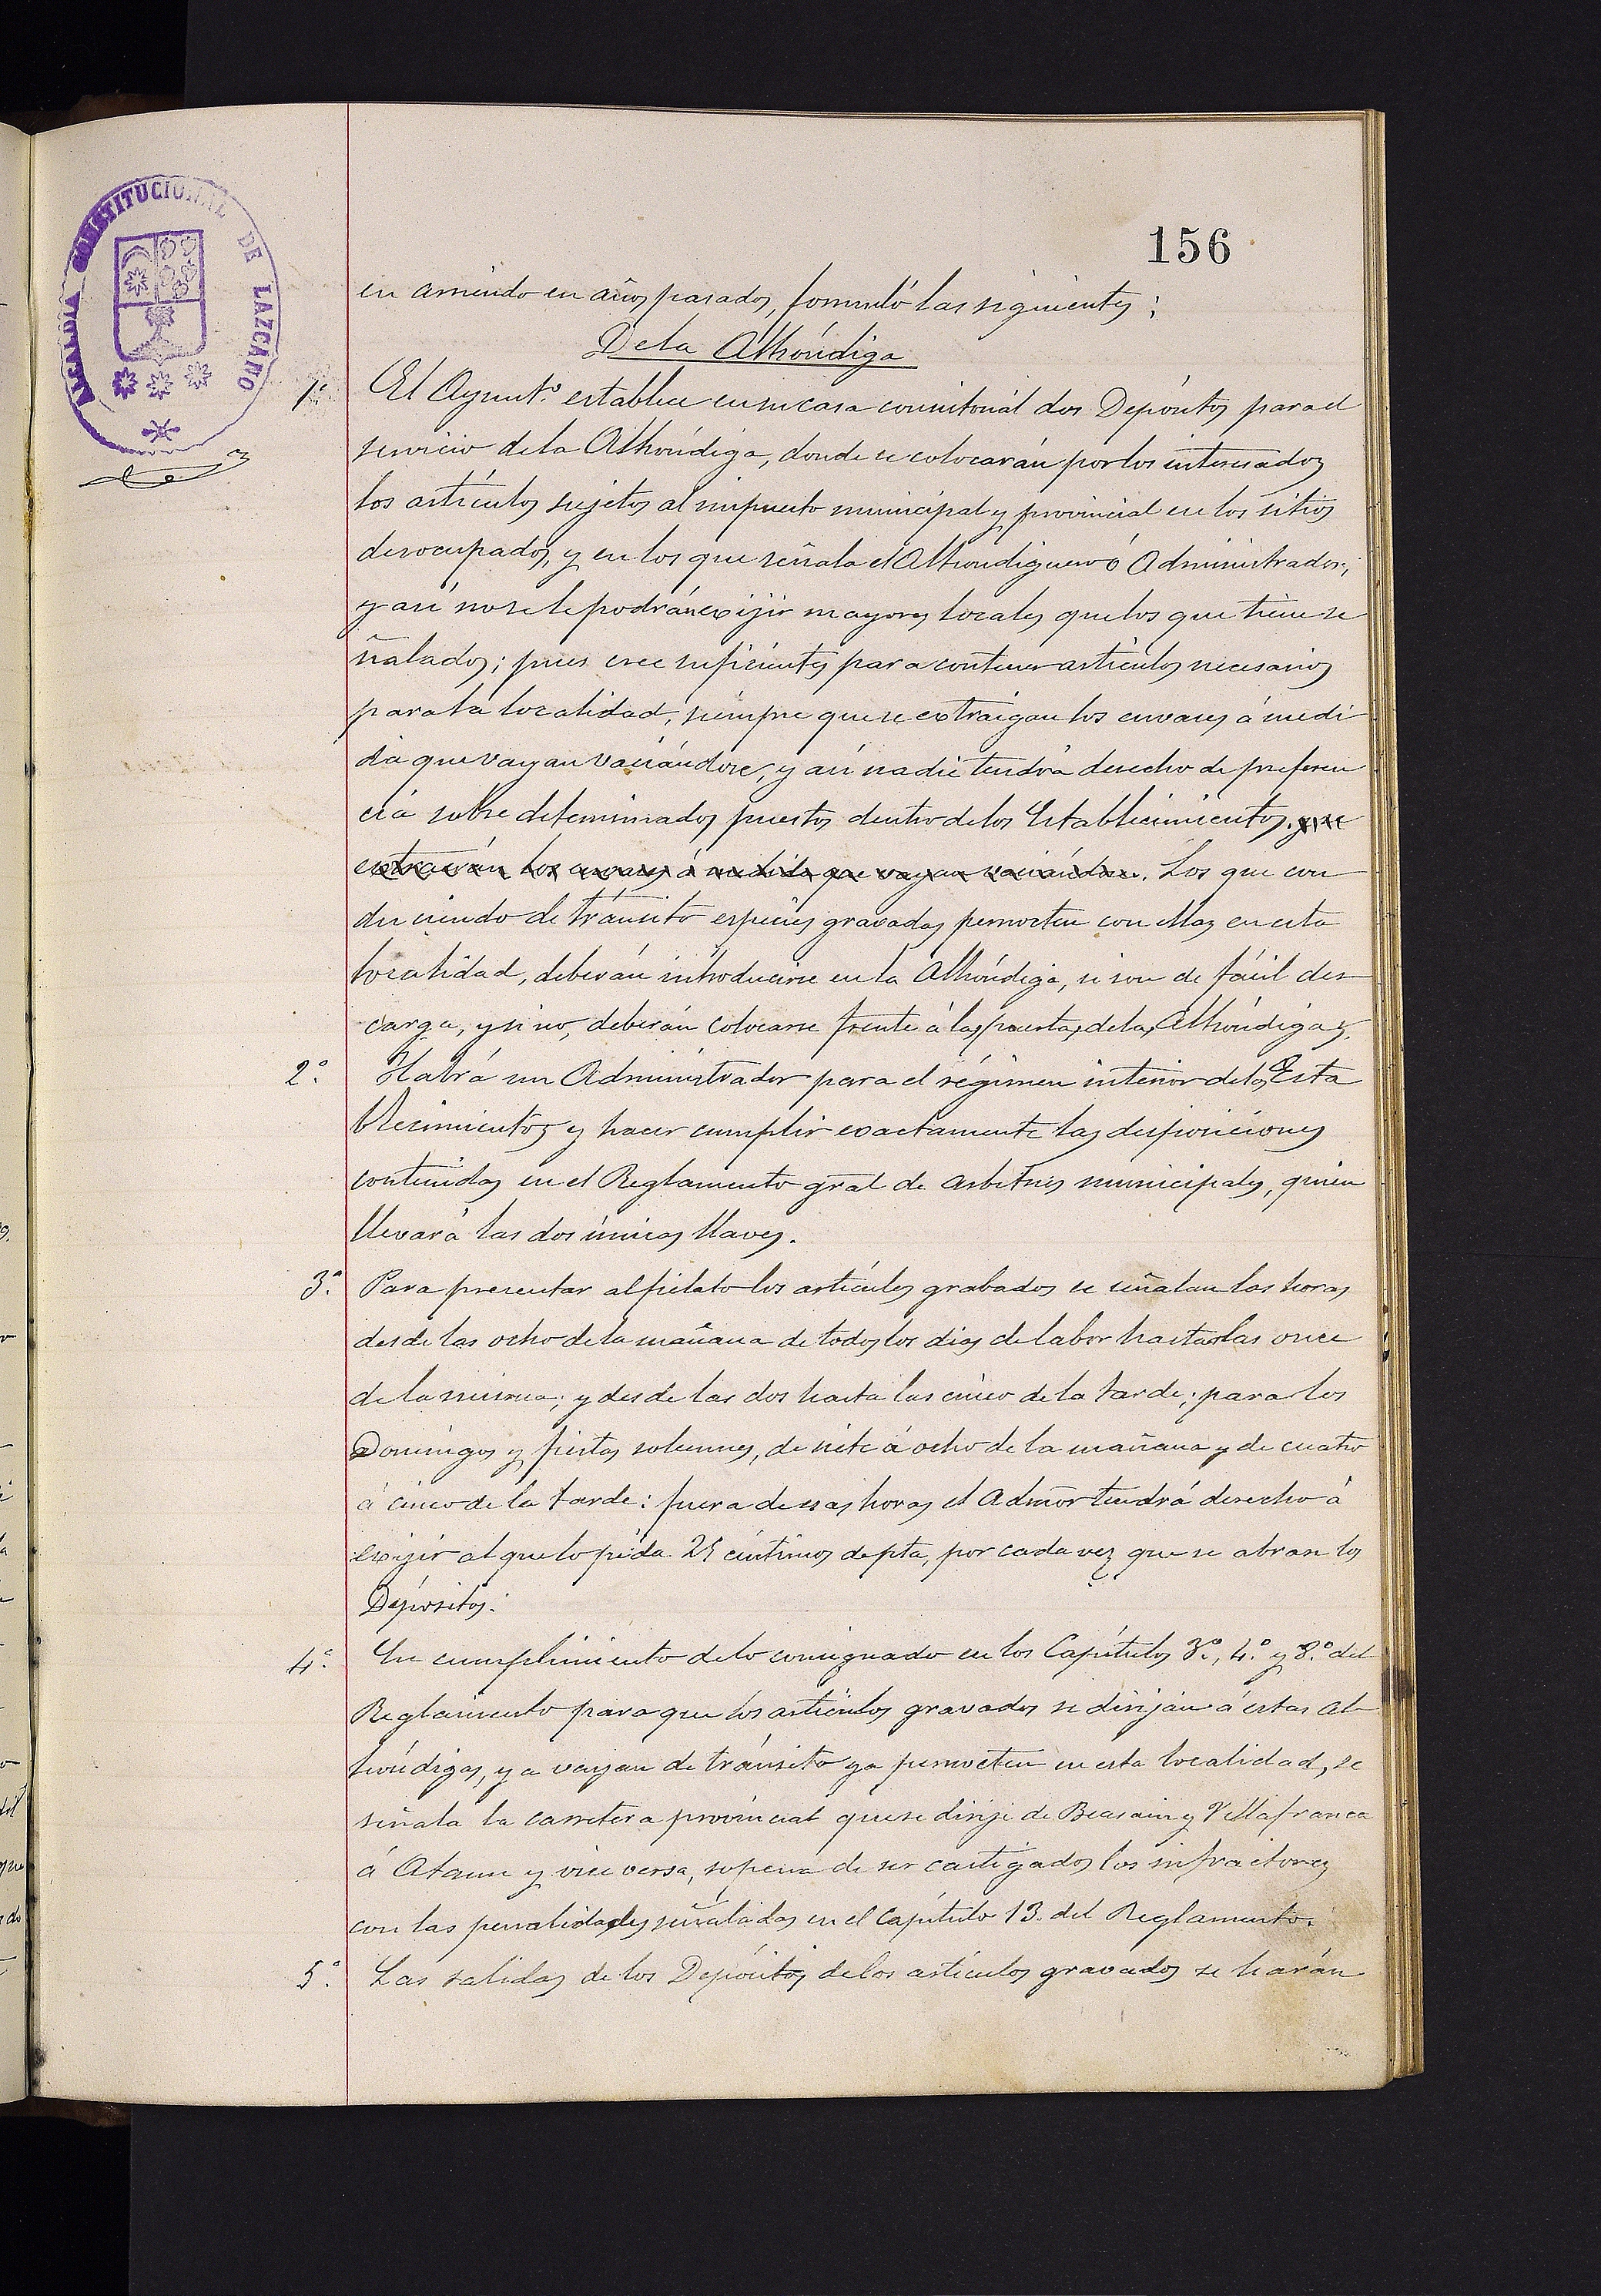 ALCALDIA CONSTITUCIONAL DE LAZCANO
156
en arriendo en años pasados, formuló las siguientes;
De la Alhóndiga
1ª. El Ayuntº. establece en su casa consistorial dos Depósitos para el
servicio de la Alhóndiga, donde se colocarán por los interesados
los artículos sujetos al impuesto municipal y provincial en los sitios
desocupados, y en los que señala el Alhondiguero ó Administrador;
y así no se le podrán exijir mayores locales que los que tiene se
ñalados; pues cree suficientes para contener artículos necesarios
para la localidad, siempre que se extraigan los envases á medi
da que vayan vaciándose, y así nadie tendrá derecho de preferen
cia sobre determinados puestos dentro de los Establecimientos. y se
extraerán los envases á medida que vayan vaciándose. Los que con
duciendo de tránsito especies gravadas pernocten con ellas en esta
localidad, deberán introducirse en la Alhóndiga, si son de fácil des
carga, y si no, deberán colocarse frente á las puertas de las Alhóndigas.
2º. Habrá un Administrador para el régimen interior de los Esta
blecimientos y hacer cumplir exactamente las disposiciones
contenidas en el Reglamento gral de arbitrios municipales, quien
llevará las dos únicas llaves.
3ª. Para presentar al fielato los artículos grabados se señalan las horas
desde las ocho de la mañana de todos los dias de labor hasta las once
de la misma; y desde las dos hasta las cinco de la tarde; para los
Domingos y fiestas solemnes, de siete á ocho de la mañana y de cuatro
á cinco de la tarde: fuera de esas horas el Admor tendrá derecho á
exijir al que lo pida 25 céntimos de pta, por cada vez que se abran los
Depósitos.
4ª. En cumplimiento de lo consignado en los Capítulos 3º., 4º. y 8º. del
Reglamento para que los artículos gravados se dirijan á estas Al
hóndigas, ya vayan de tránsito ya pernocten en esta localidad, se
señala la carretera provincial que se dirije de Beasain y Villafranca
á Ataun y vice versa, sopena de ser castigados los infractores
con las penalidades señaladas en el Capítulo 13. del Reglamento.
5ª. Las salidas de los Depósitos de los artículos gravados se harán